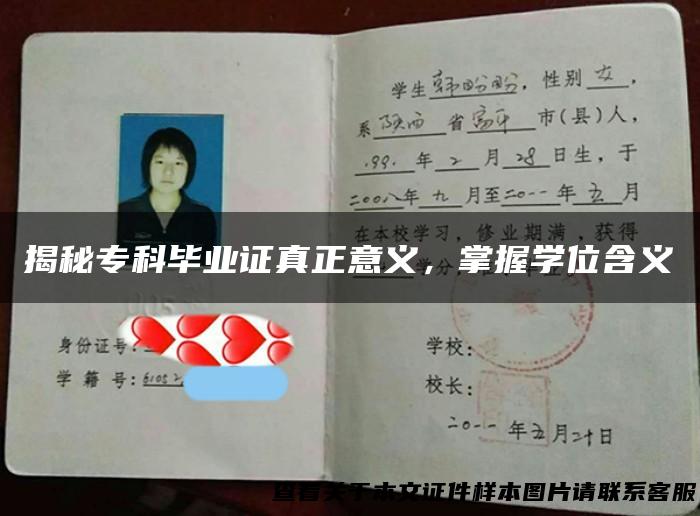 学生韩盼盼，性别女，
系陕西省富平市(县)人，
199.年2月28日生，于
二00八年九月至二0一一年五月
在本校学习，修业期满，获得
揭秘专科毕业证真正意义，掌握学位含义
学分
身份证号:
学籍号: 61052
学校:
校长:
二0一一年五月二十日
查看关于本文证件样本图片请联系客服